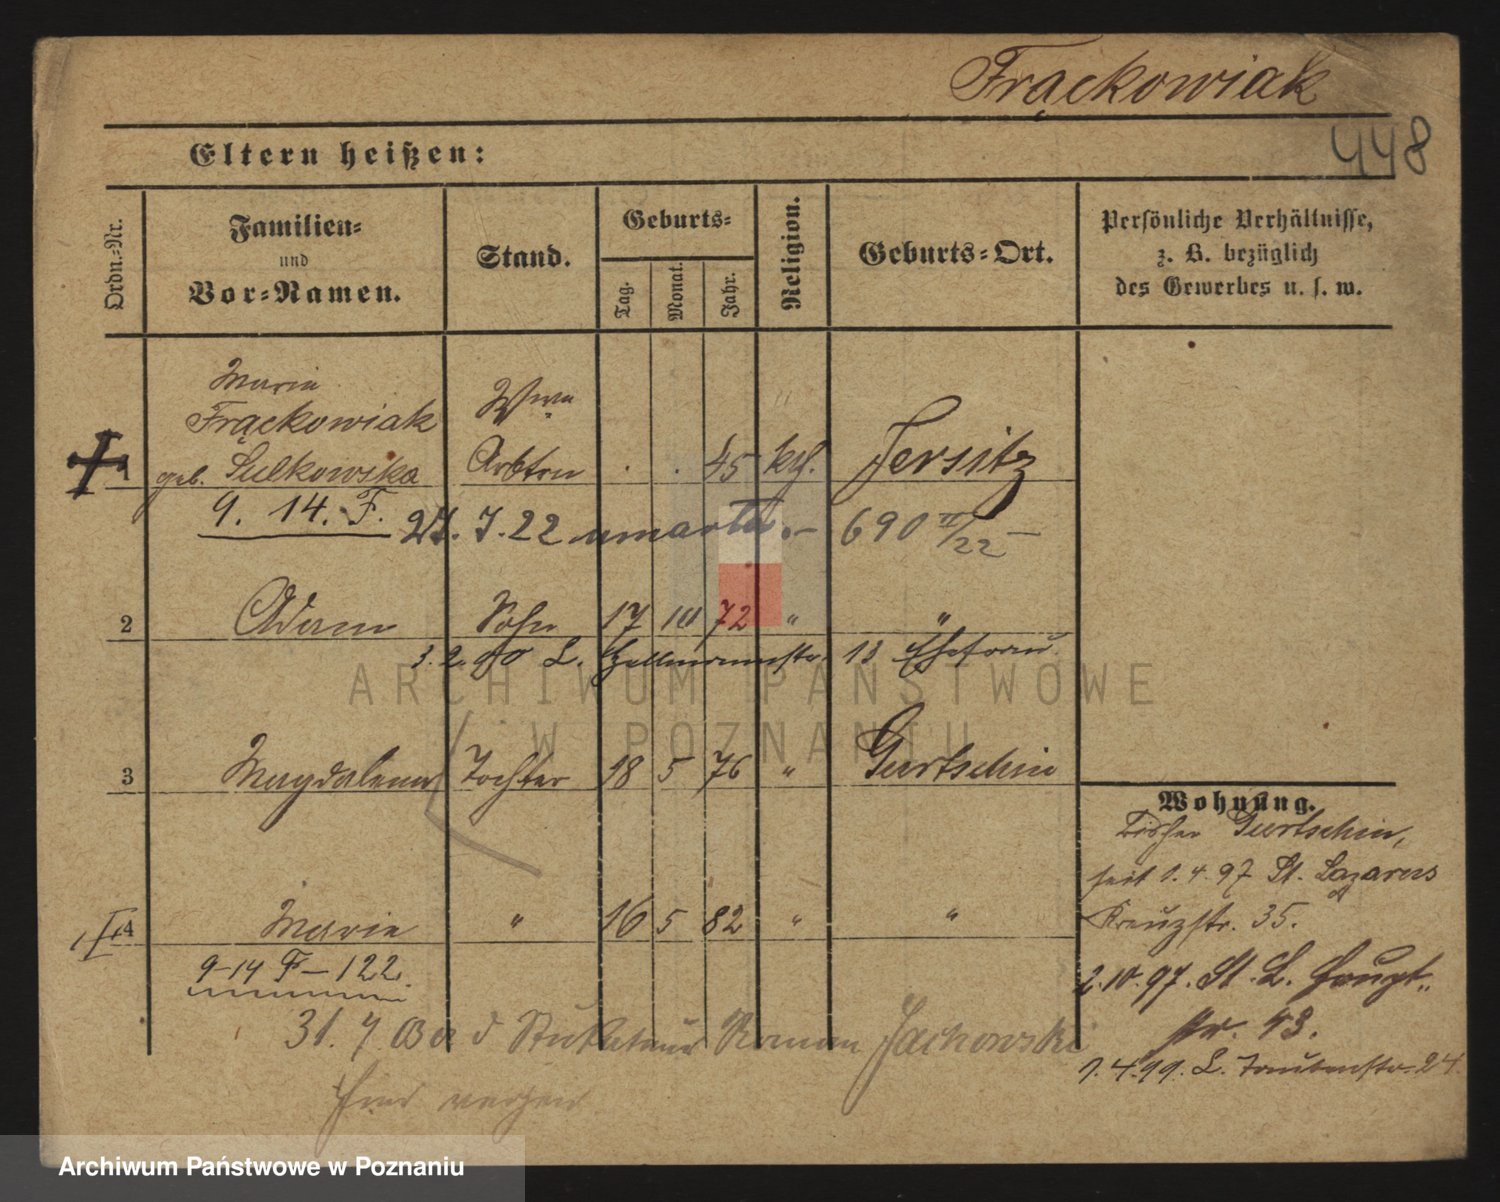 Frąckowiak
448
Eltern heißen:
Ordn.-Nr.
Familien-
und
Vor-Namen.
Stand.
Geburts-
Tag.
Monat.
Jahr.
Religion.
Geburts-Ort.
Persönliche Verhältnisse,
z. B. bezüglich
des Gewerbes u. s. w.
Marie
Frąckowiak
geb. Sulkowska
Wwe
Arbtrn
45 kth. Jersitz
9. 14. F.
27. 7. 22 umarła.– 690 II/22 –
2 Adam Sohn 17 10 72 " "
3. 2. 00 L. 13 Ehefrau
3 Magdalena Tochter 18 5 76 " Gurtschin
4 Marie " 16 5 82 " "
9–14 F–122.
31. 7 Stukateur Roman Jachowski
Wohnung.
Bisher Gurtschin,
seit 1. 4. 97 St. Lazarus
Kreuzstr. 35.
2. 10. 97. St. L. Haupt-
str. 43.
1. 4. 99. L. Taubenstr. 24.
ARCHIWUM PAŃSTWOWE
W POZNANIU
Archiwum Państwowe w Poznaniu